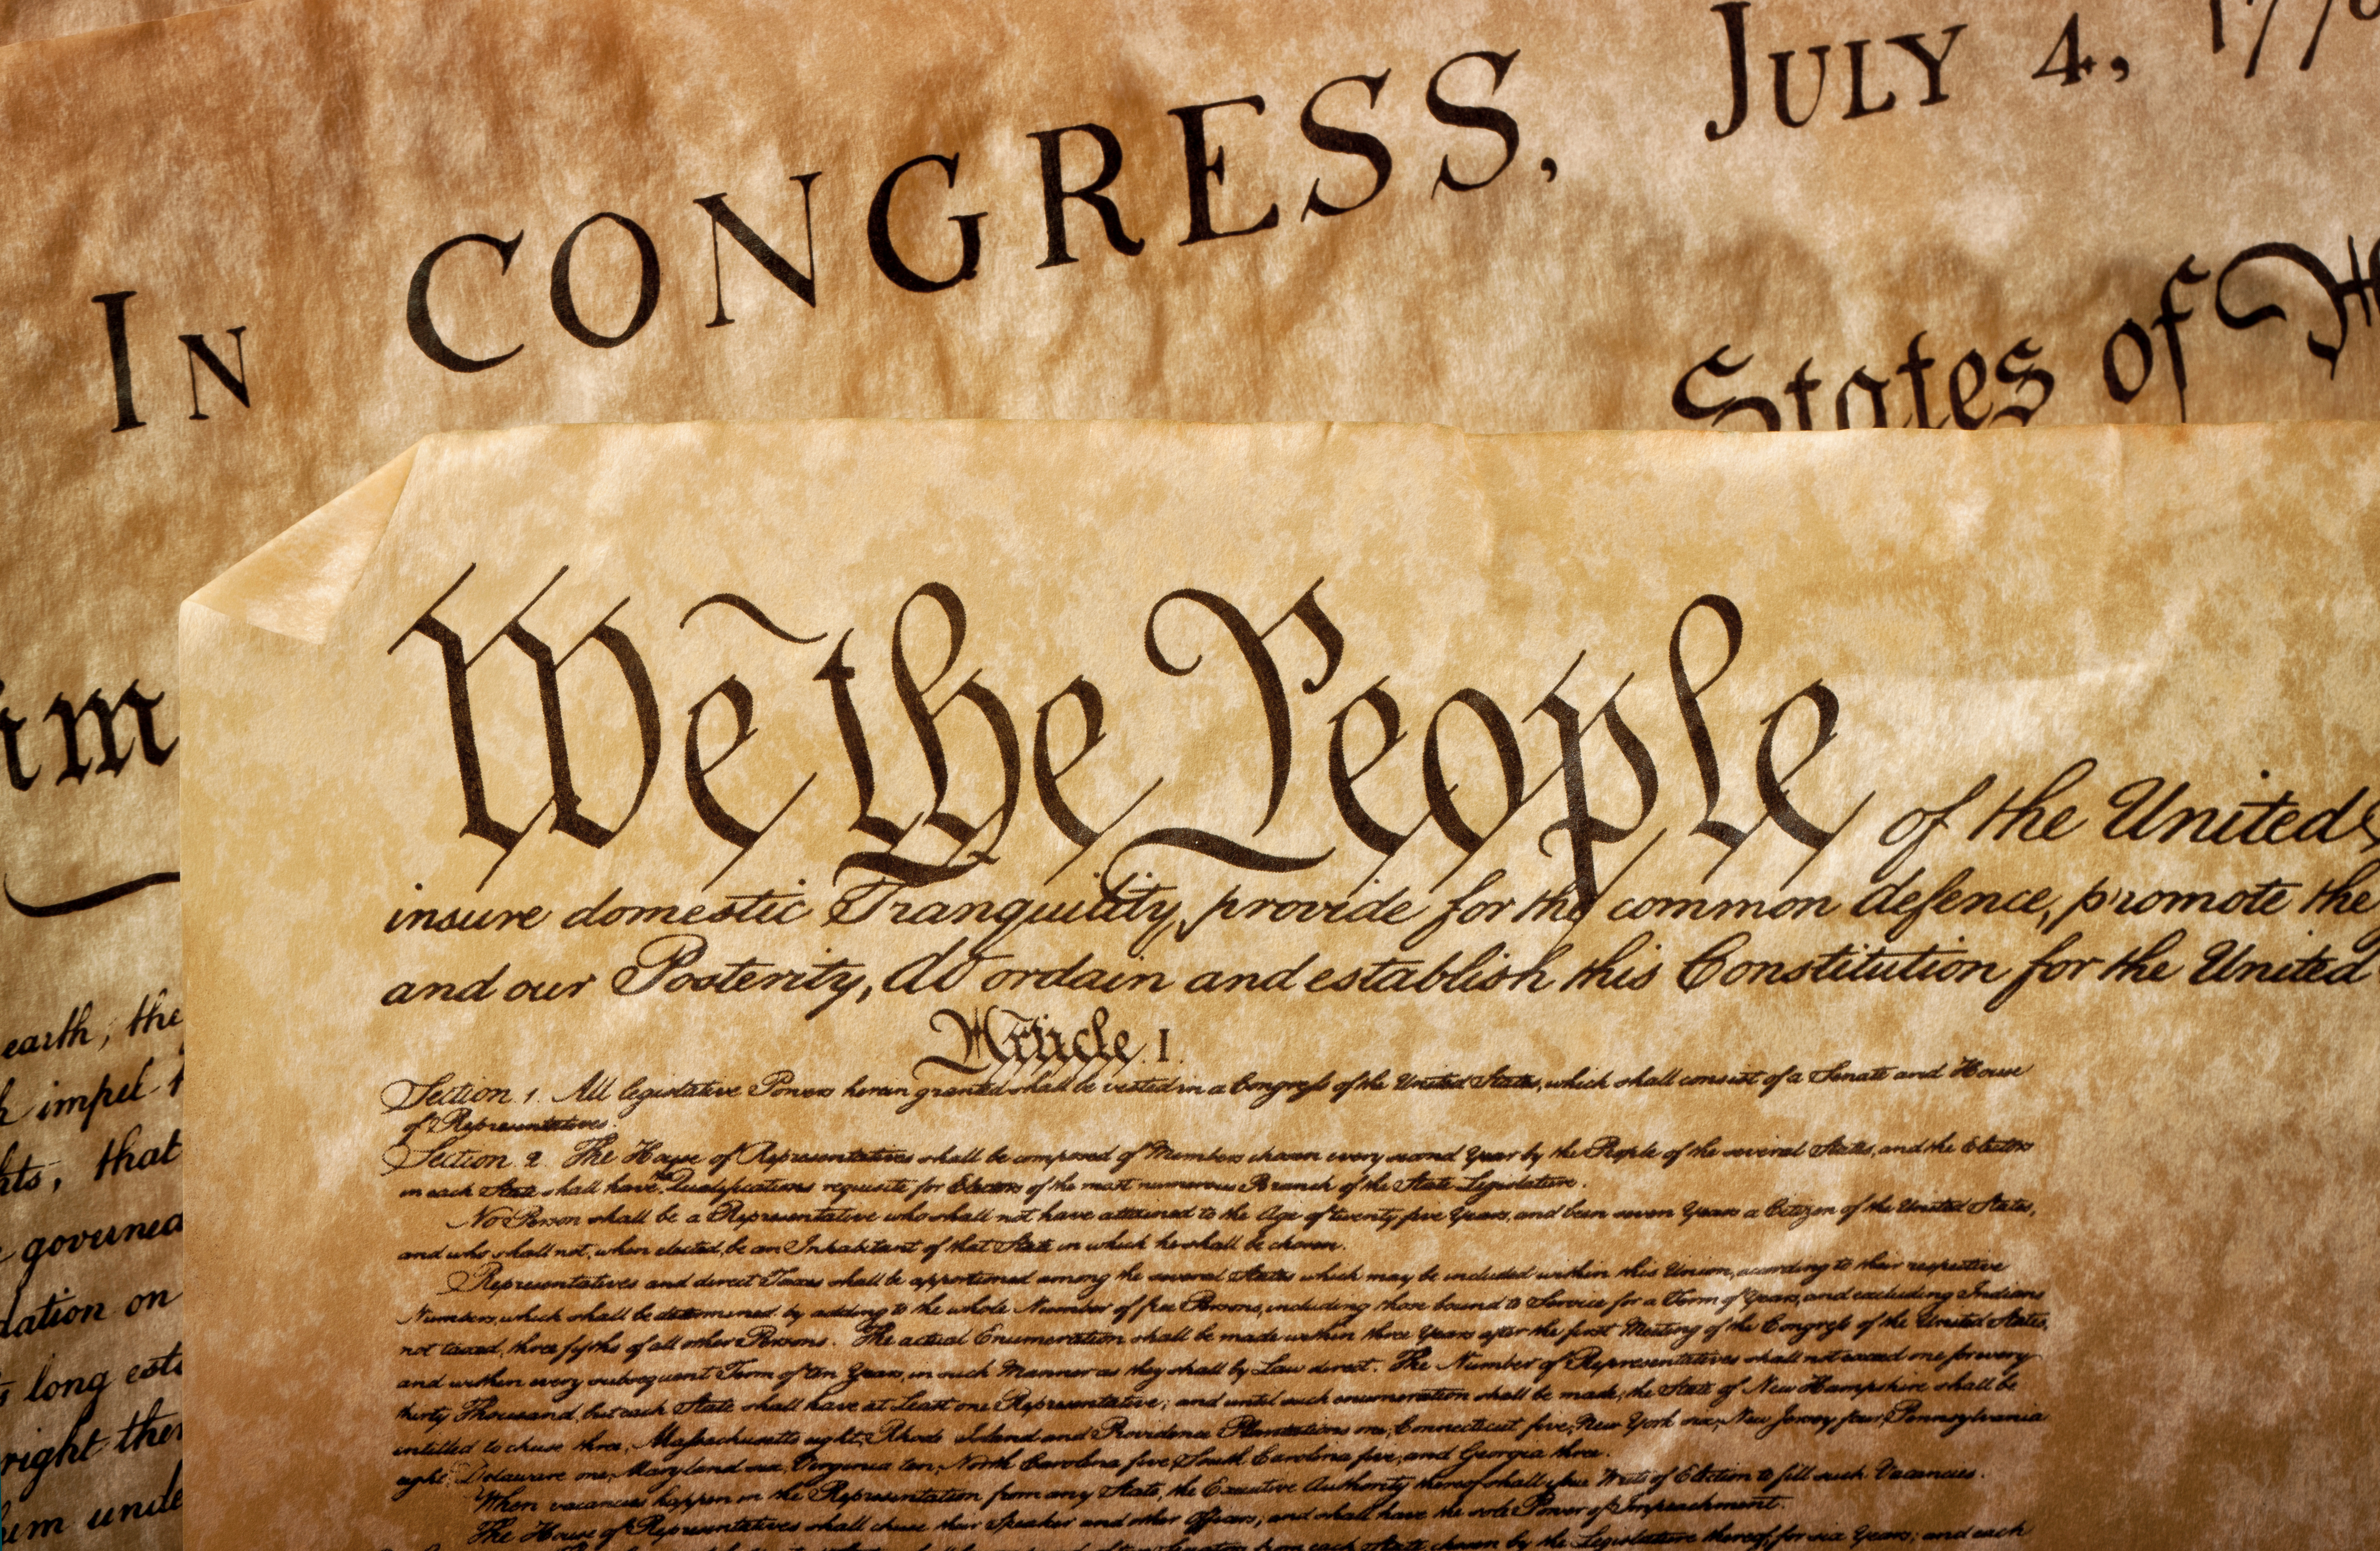 In CONGRESS, July 4, 177
States of
im
We the People of the United
insure domestic Tranquility, provide for the common defence, promote the
and our Posterity, do ordain and establish this Constitution for the United
Article. I.
Section. 1. All legislative Powers herein granted shall be vested in a Congress of the United States, which shall consist of a Senate and House
of Representatives.
Section. 2. The House of Representatives shall be composed of Members chosen every second Year by the People of the several States, and the Electors
in each State shall have the Qualifications requisite for Electors of the most numerous Branch of the State Legislature.
No Person shall be a Representative who shall not have attained to the Age of twenty five Years, and been seven Years a Citizen of the United States,
and who shall not, when elected, be an Inhabitant of that State in which he shall be chosen.
Representatives and direct Taxes shall be apportioned among the several States which may be included within this Union, according to their respective
Numbers, which shall be determined by adding to the whole Number of free Persons, including those bound to Service for a Term of Years, and excluding Indians
not taxed, three fifths of all other Persons. The actual Enumeration shall be made within three Years after the first Meeting of the Congress of the United States,
and within every subsequent Term of ten Years, in such Manner as they shall by Law direct. The Number of Representatives shall not exceed one for every
thirty Thousand, but each State shall have at Least one Representative; and until such enumeration shall be made, the State of New Hampshire shall be
entitled to chuse three, Massachusetts eight, Rhode Island and Providence Plantations one, Connecticut five, New York six, New Jersey four, Pennsylvania
eight, Delaware one, Maryland six, Virginia ten, North Carolina five, South Carolina five, and Georgia three.
When vacancies happen in the Representation from any State, the Executive Authority thereof shall issue Writs of Election to fill such Vacancies.
The House of Representatives shall chuse their Speaker and other Officers; and shall have the sole Power of Impeachment.
from each State chosen by the Legislature thereof, for six Years; and each
earth, the
impel
that
governed
dation on
long esta
right
unde